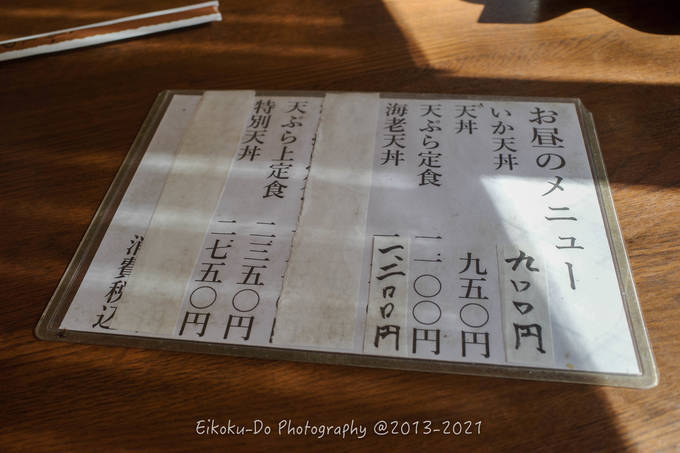 お昼のメニュー
いか天丼 九〇〇円
天丼 九五〇円
天ぷら定食 一一〇〇円
海老天丼 一、二〇〇円
天ぷら上定食 二三五〇円
特別天丼 二七五〇円
消費税込
Eikoku-Do Photography @2013-2021